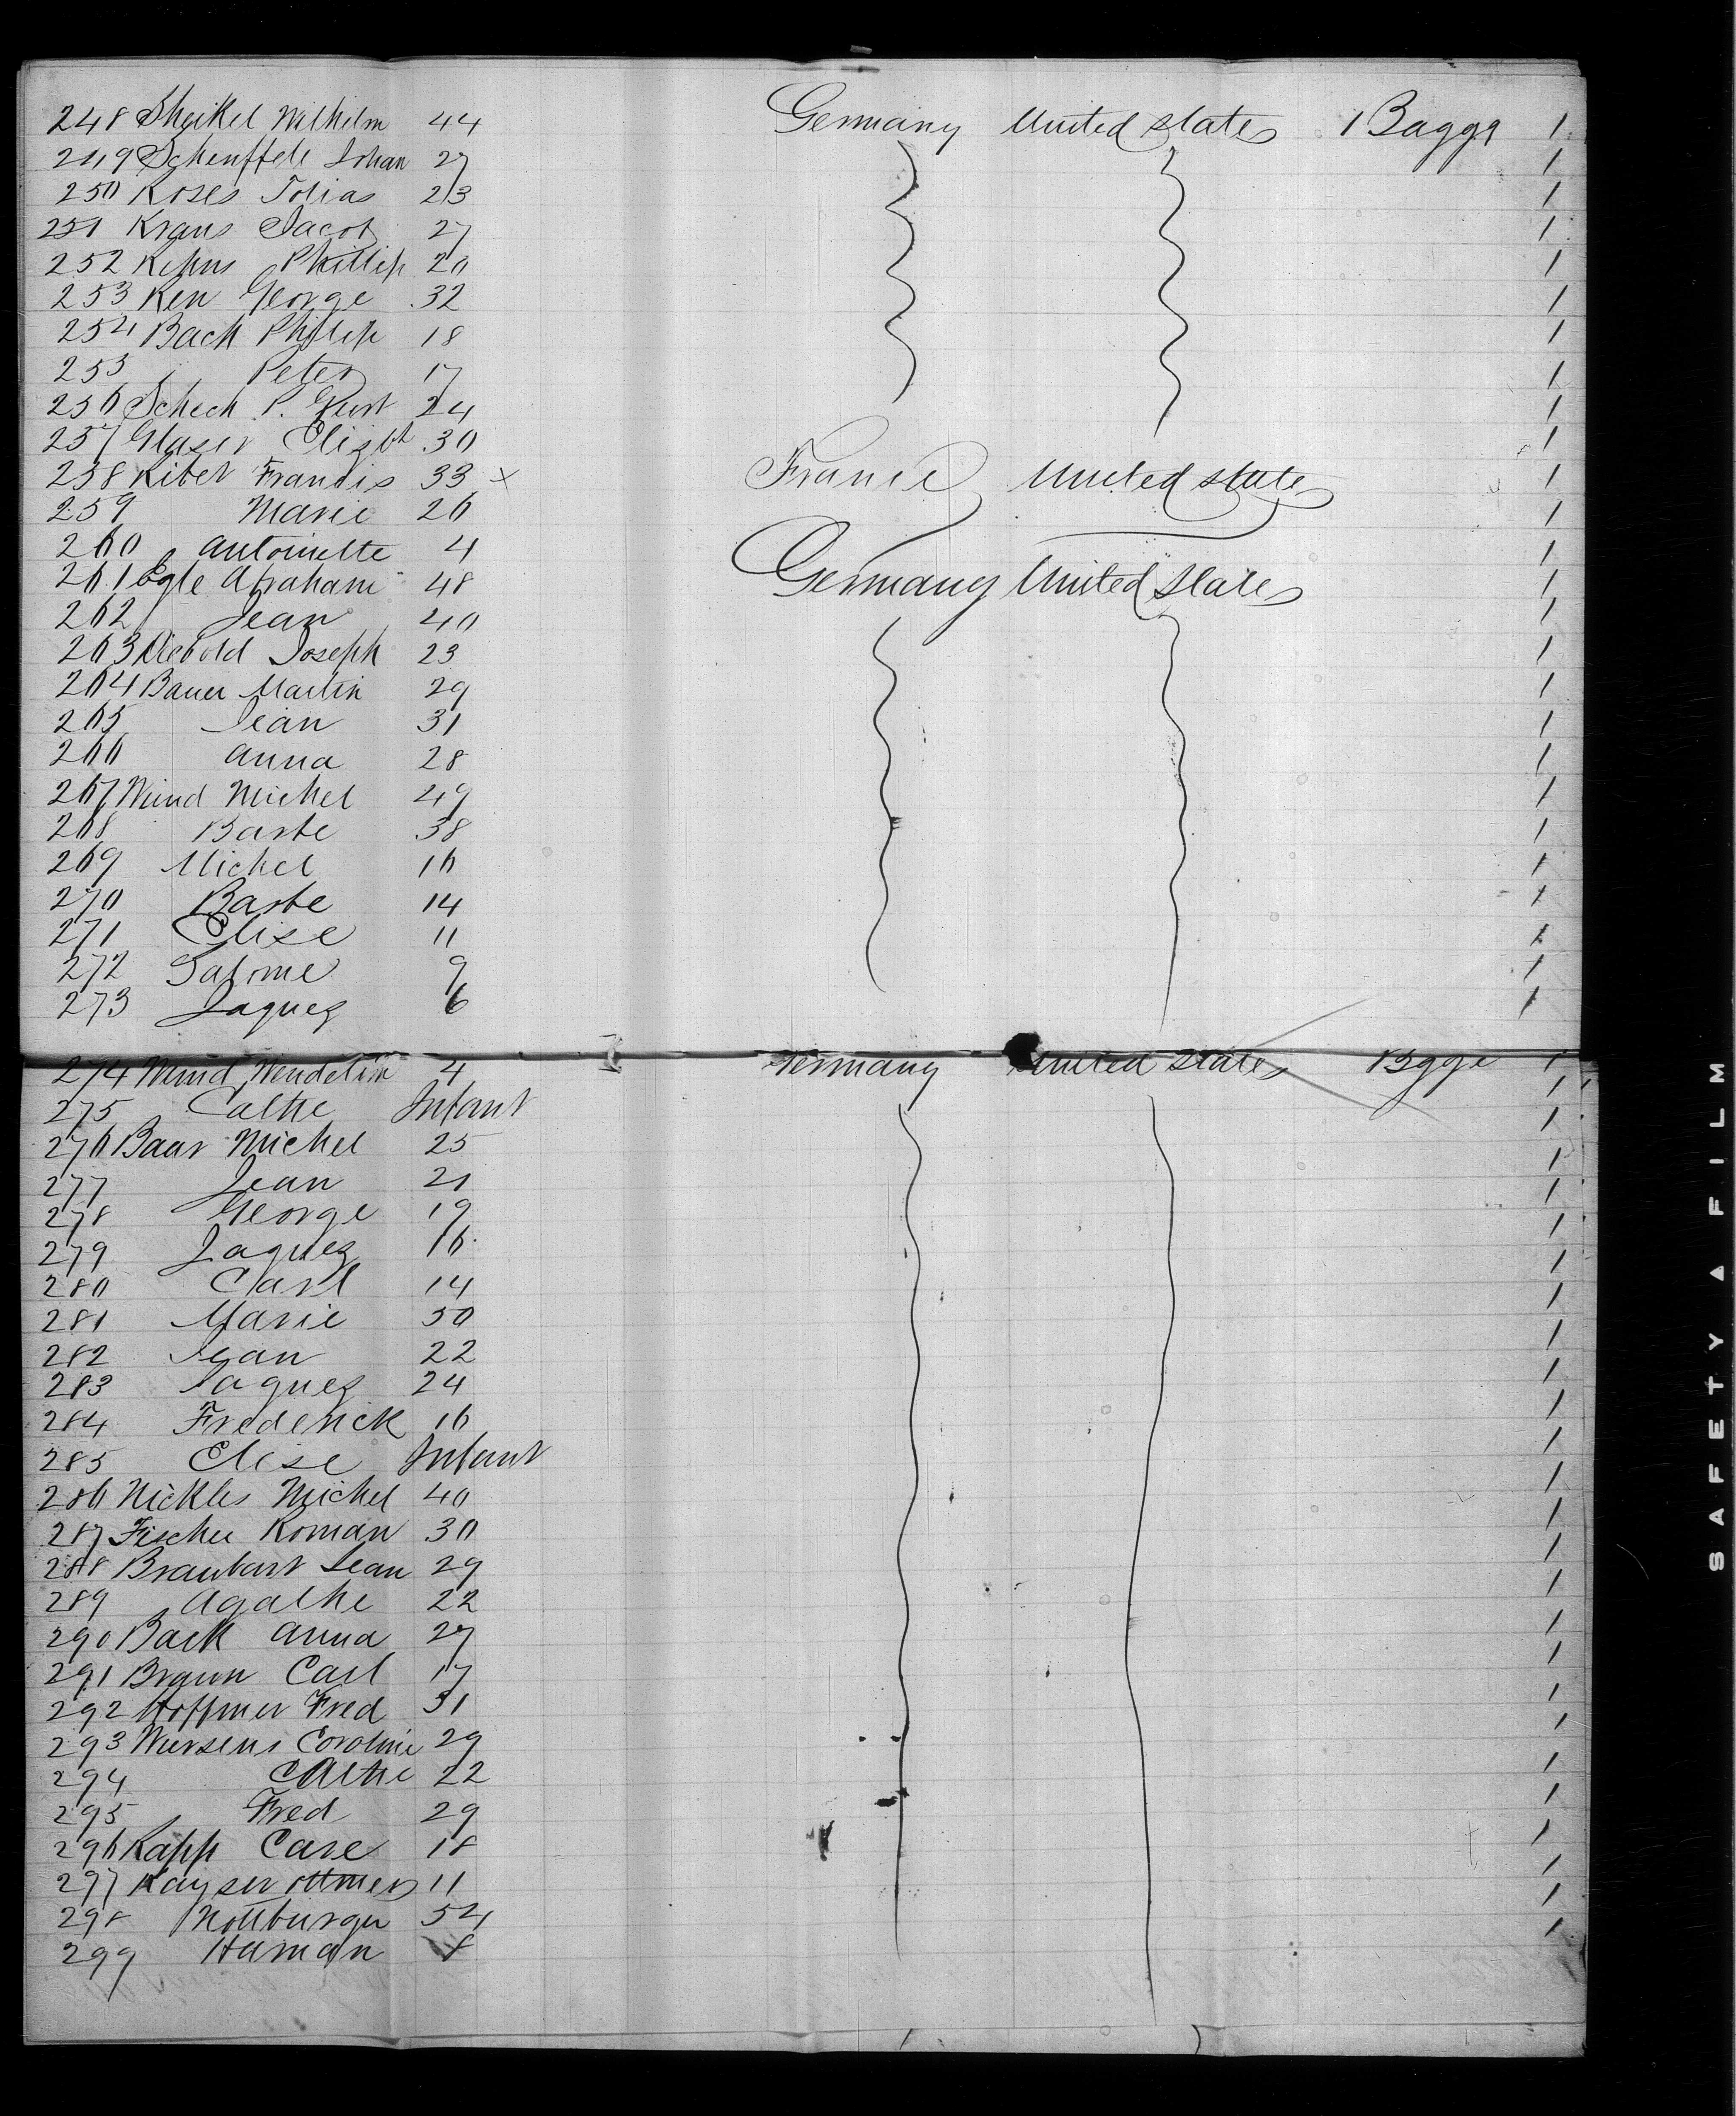 248 Sheikel Wilhelm 44 Germany United States 1 Bagga 1
249 Scheuffele Johan 27 1
250 Roses Tobias 23 1
251 Kraus Jacob 27 1
252 Phillip 20 1
253 Ken George 32 1
254 Bach Philip 18 1
255 Peter 17 1
256 Schech P. 24 1
257 Glaser Elisbt 30 1
258 Ribet Francis 33 x France United States 1
259 Marie 26 1
260 Antoinette 4 1
261 Egle Abraham 48 Germany United States 1
262 Jean 40 1
263 Diebold Joseph 23 1
264 Bauer Martin 29 1
265 Jean 31 1
266 Anna 28 1
267 Wund Michel 49 1
268 Barbe 38 1
269 Michel 16 1
270 Barbe 14 1
271 Elise 11 1
272 Salome 9 1
273 Jaques 6 1
274 Wund Wendelin 4 Germany United States Bgge 1
275 Cathe Infant 1
276 Baar Michel 25 1
277 Jean 21 1
278 George 19 1
279 Jaques 16 1
280 Carl 14 1
281 Marie 50 1
282 Jean 22 1
283 Jaques 24 1
284 Frederick 16 1
285 Elise Infant 1
286 Nickles Michel 40 1
287 Fischer Roman 30 1
288 Braubart Jean 29 1
289 Agathe 22 1
290 Back Anna 27 1
291 Braun Carl 17 1
292 Hoffmer Fred 31 1
293 Caroline 29 1
294 Cathe 22 1
295 Fred 29 1
296 Rapp Care 18 1
297 Kayser Ottmer 11 1
298 Nottburger 54 1
299 Haman 8
SAFETY ▲ FILM